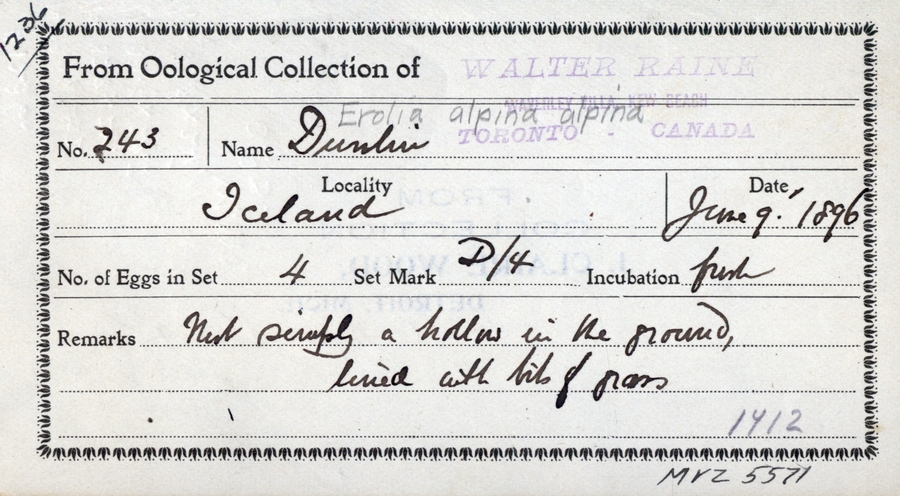 1236
From Oological Collection of WALTER RAINE
WAVERLEY VILLA, KEW BEACH
Erolia alpina alpina
TORONTO - CANADA
No. 243 Name Dunlin
Locality Date
Iceland June 9. 1896
No. of Eggs in Set 4 Set Mark D/4 Incubation fresh
Remarks Nest simply a hollow in the ground,
lined with bits of grass
1912
MVZ 5571